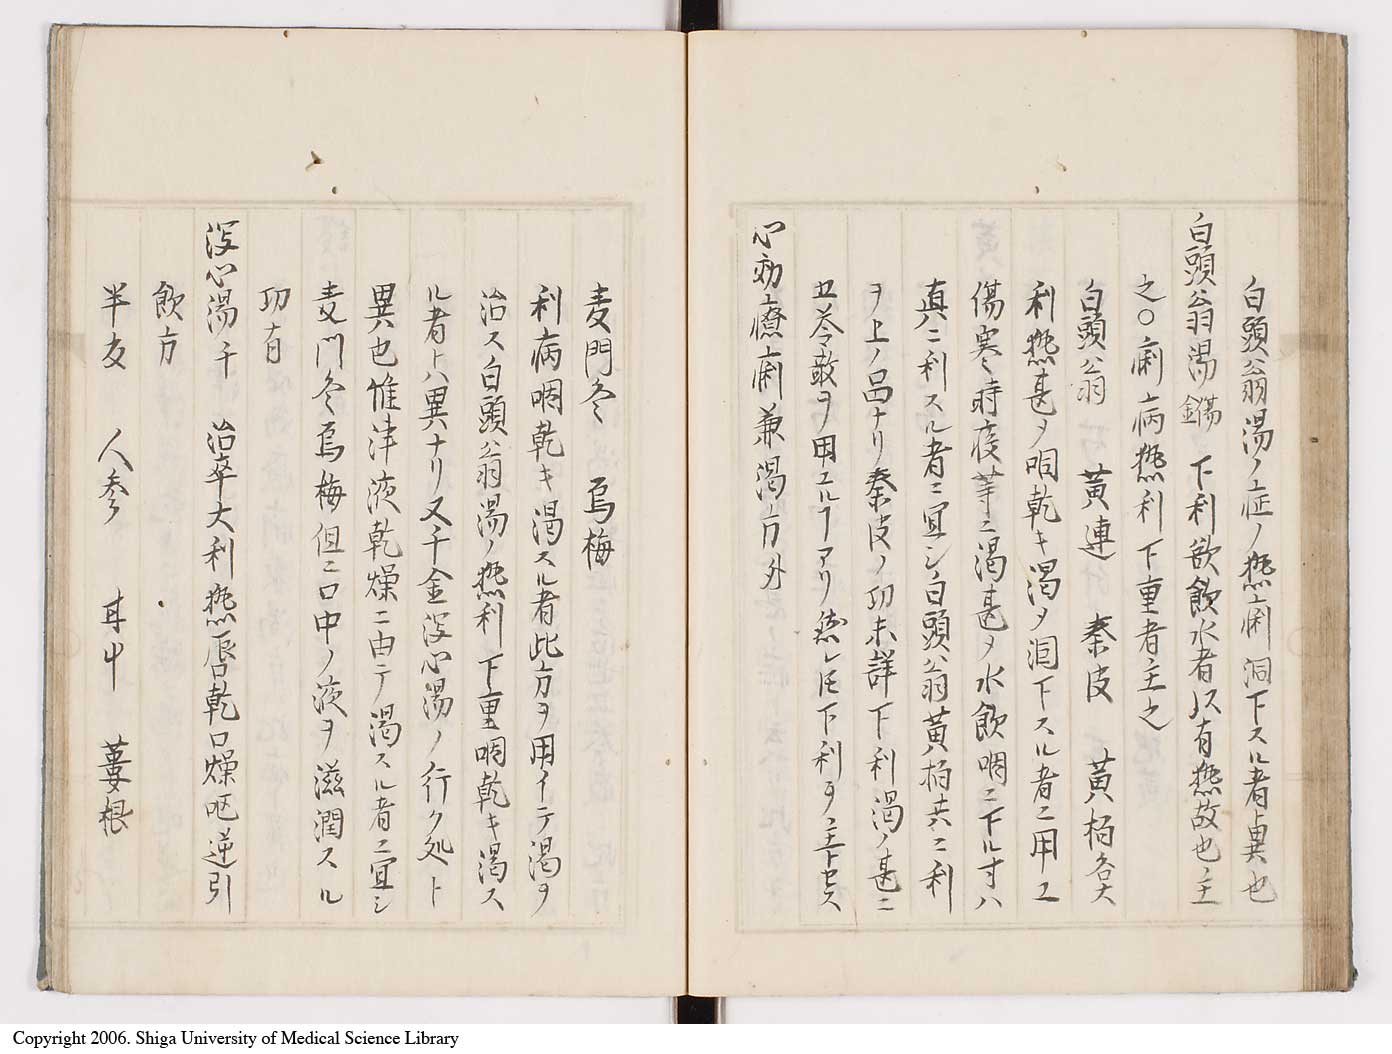 白頭翁湯ノ症ノ熱痢洞下スル者與也
白頭翁湯 傷 下利欲飲水者以有熱故也主
之〇痢病熱利下重者主之
白頭翁 黄連 秦皮 黄栢各大
利熱甚ヲ咽乾キ渇ヲ洄下スル者ニ用エ
傷寒時疫等ニ渇甚ヲ水飲咽ニ下ル寸ハ
真ハニ利スル者ニ宜シ白頭翁黄栢共ニ利
ヲ上ノ品ナリ秦皮ノ功未詳下利渇ノ甚ニ
五苓散ヲ用エルヿアリ然レ𪜈下利ヲ主トセス
心効療痢兼渇方 外
麦門冬 烏梅
利病咽乾キ渇スル者此方ヲ用イテ渇ヲ
治ス白頭翁湯ノ熱利下重咽乾キ渇ス
ル者トハ異ナリ又千金瀉心湯ノ行ク処ト
異也惟津液乾燥ニ由テ渇スル者ニ宜シ
麦門冬烏梅但ニ口中ノ液ヲ滋潤スル
功有
瀉心湯 千 治卒大利熱唇乾口燥呕逆引
飲方
半夏 人参 甘中 蔞根
Copyright 2006. Shiga University of Medical Science Library